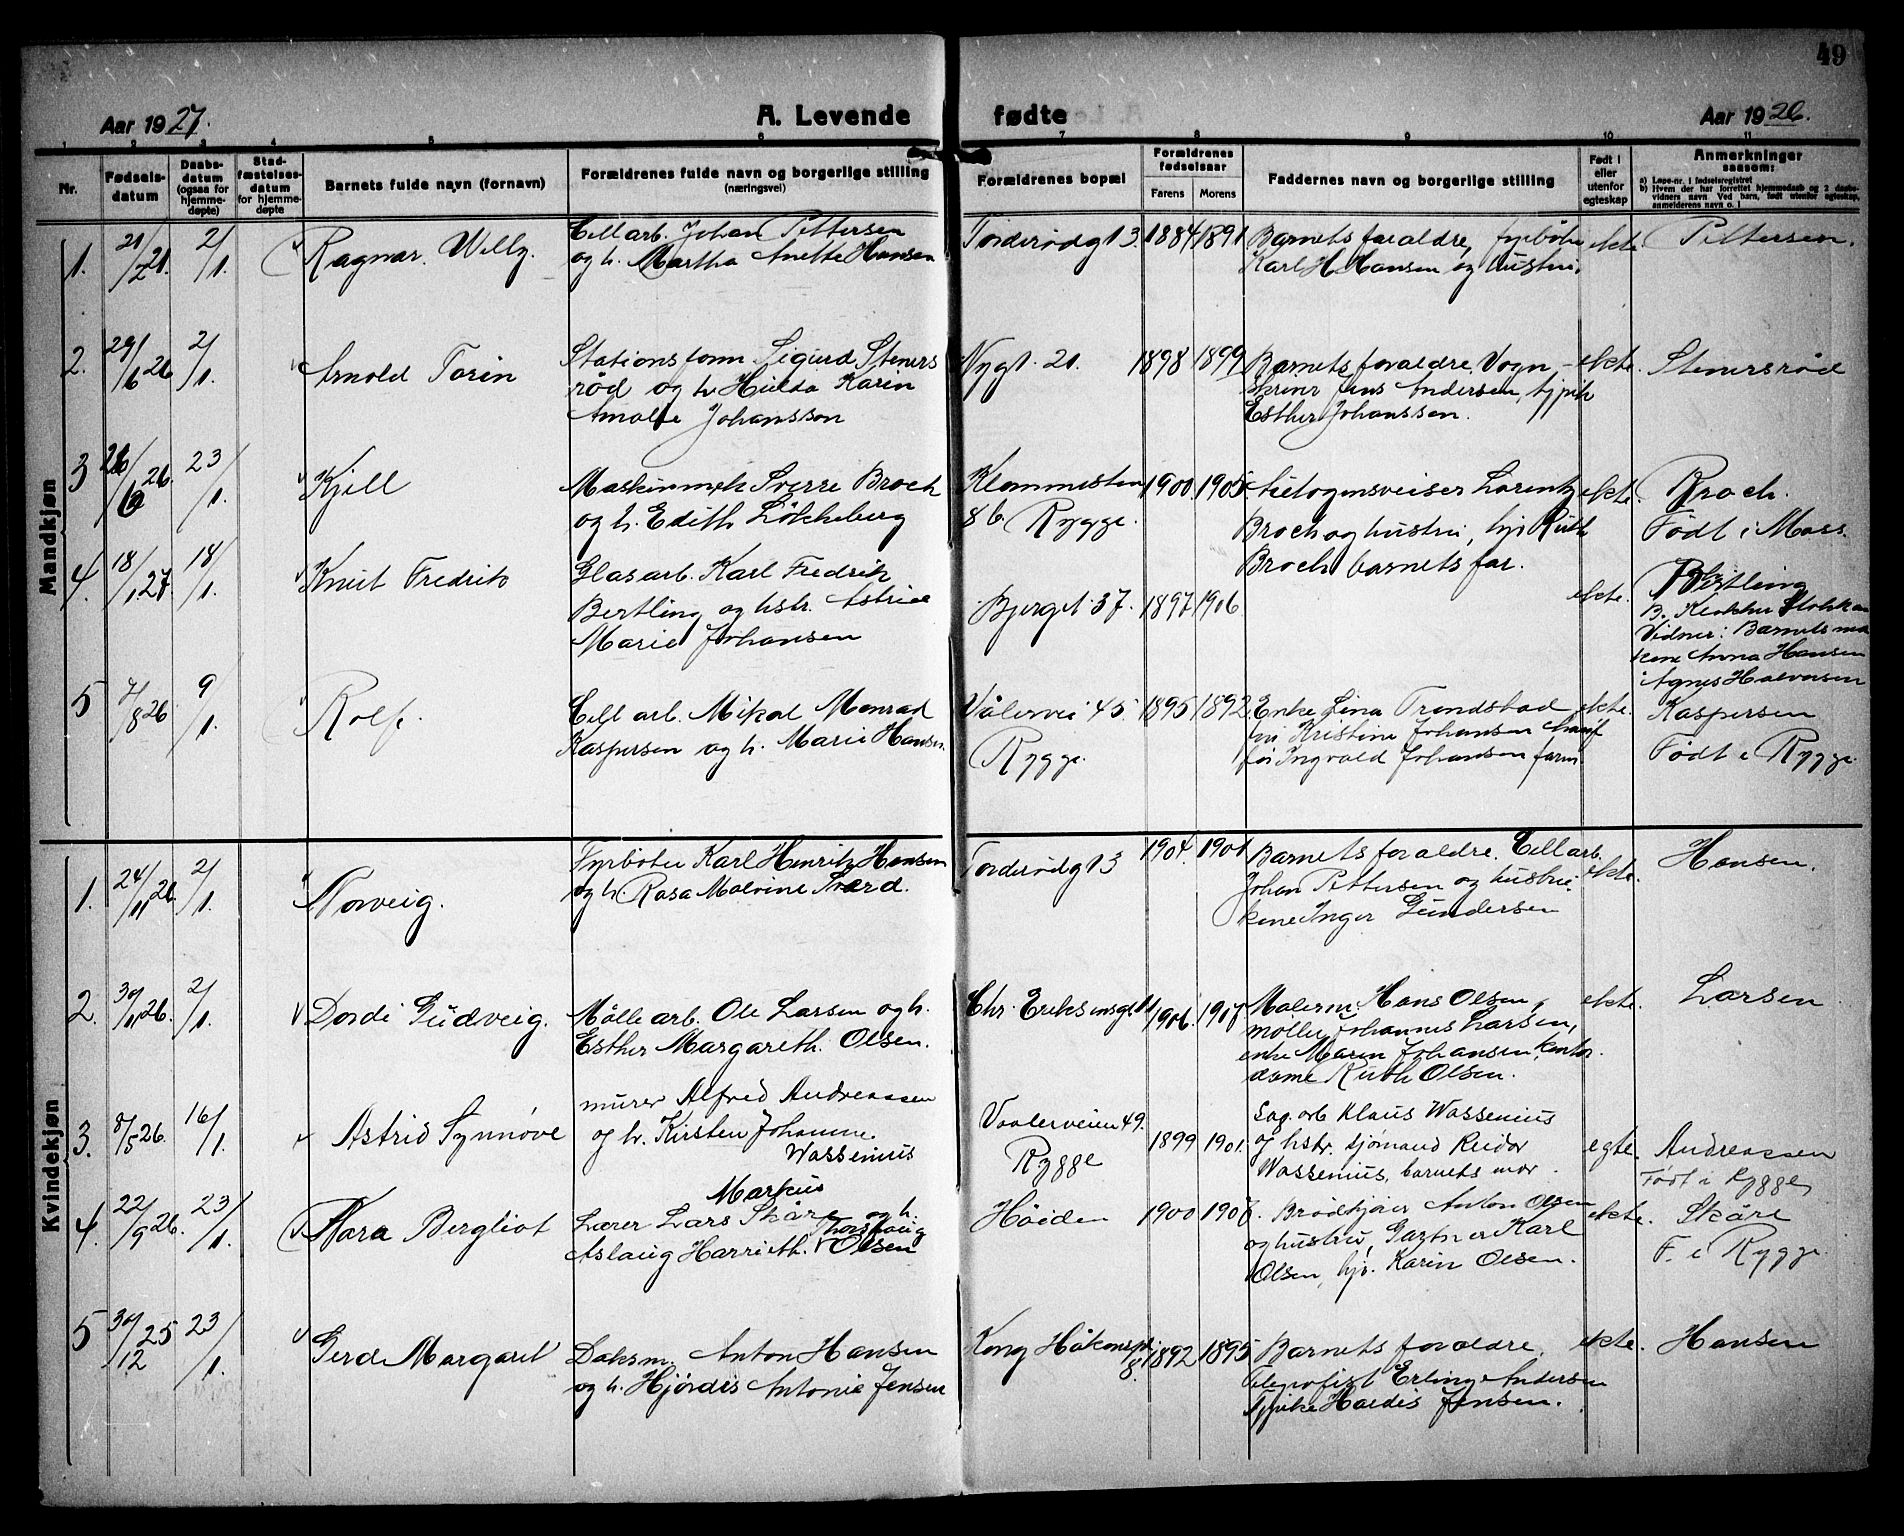 49
Aar 1927.
A. Levende fødte
Aar 1926.
1 2 3 4 5 6 7 8 9 10 11
Nr.
Fødselsdatum
Daabsdatum (ogsaa for hjemmedøpte)
Stadfæstelsesdatum for hjemmedøpte
Barnets fulde navn (fornavn)
Forældrenes fulde navn og borgerlige stilling (næringsvei)
Forældrenes bopæl
Forældrenes fødselsaar
Farens
Morens
Faddernes navn og borgerlige stilling
Født i eller utenfor egteskap
Anmerkninger saasom:
a) Løpe-nr. i fødselsregistret
b) Hvem der har forrettet hjemmedaab og 2 daabsvidners navn. Ved barn, født utenfor egteskap, anmelderens navn o. l
Mandkjøn
1. 21/7 21. 2/1. Ragnar. Willy.
Cellarb. Johan Pettersen
og h. Martha Anette Hansen
Torderødgt 3 1884 1891
Barnets foraldre, fyrbøter
Karl H. Hansen og hustru.
ekte Pettersen.
2. 29/6 26 2/1. Arnold Torin
Stationsform Sigurd Steners
rød og h Hulda Karen
Amalie Johansson
Nygt. 21. 1898 1899
Barnets foraldre, Vogn-
skriver Jens Andersen,
Esther Johanssen.
ekte. Stenersrød
3 26. 23/1. Kjell
Maskinmek Sverre Broch
og h. Edith Løkkeberg
Klommesten
86. Rygge. 1900. 1905
Autogensveiser Lorentz
Broch og hustru, frk Ruth
Broch barnets far.
ekte. Broch.
Født i Moss.
4. 18/1. 27. 18/1. Knut Fredrik
Glasarb. Karl Fredrik
Bertling og hstr. Astrid
Marie Johansen
Bjerget 37. 1897 1906
ekte. Bertling
B. Klokker
Vidner: Barnets mor
Anna Hansen
Agnes Halvorsen
5 7/8 26 9/1. Rolf.
Cellarb. Mikal Monrad
Kaspersen og h. Marie Hansen.
Vålervei 45.
Rygge. 1895 1892
Enke Lina Trondstad
fru Kristine Johansen Chauf
før Ingvald Johansen farm
ekte. Kaspersen
Født i Rygge.
Kvindekjøn
1. 24/11 26. 2/1. Norveig.
Fyrbøter Karl Henritz Hansen
og h. Rosa Malvine Svärd.
Torderødgt 3 1904. 1901
Barnets foraldre. Cellarb.
Johan Pettersen og hustru.
Inger Gundersen
ekte. Hansen.
2. 30/11 26. 2/1. Dordi Gudveig.
Möllearb. Ole Larsen og h.
Esther Margareth. Olsen.
Chr. Eriksensgt 1906. 1907
Malerm. Hans Olsen,
möller Johannes Larsen,
enke Maren Johansen, kontor.
dame Ruth Olsen.
ekte. Larsen
3. 8/5 26. 16/1. Astrid Synnøve
murer Alfred Andreassen
og h. Kirsten Johanne.
Wassenius
Vaalerveien 49.
Rygge 1899 1901.
Sag.arb Klaus Wassenius
og hstr. sjømand Reidar
Wassenius, barnets mor.
egte. Andreassen
Født i Rygge,
4. 22/9 26. 23/1. Nora Bergliot
Markus
Lærer Lars Skåre og h.
Aslaug Harrieth. Thorshaug
Olsen
Høiden 1900
Brødkjører Anton Olsen
og hustru, Gartner Karl
Olsen, frk. Karin Olsen.
ekte. Skåre
F. i Rygge.
5 30/12 25 23/1. Gerd Margaret
Daksm. Anton Hansen
og h. Hjørdis Antonie Jensen
Kong Håkonspl
8. 1892 1895
Barnets foraldre,
Telegrafist Erling Andersen
Hardis Jensen.
ekte. Hansen